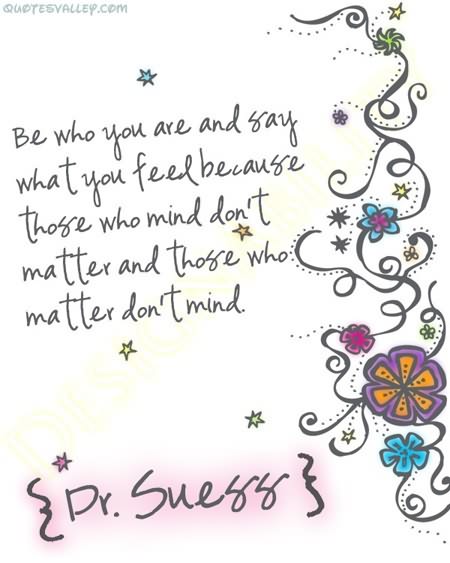 QUOTESVALLEY.COM
Be who you are and say
what you feel because
those who mind don't
matter and those who
matter don't mind.
{Dr. Suess}